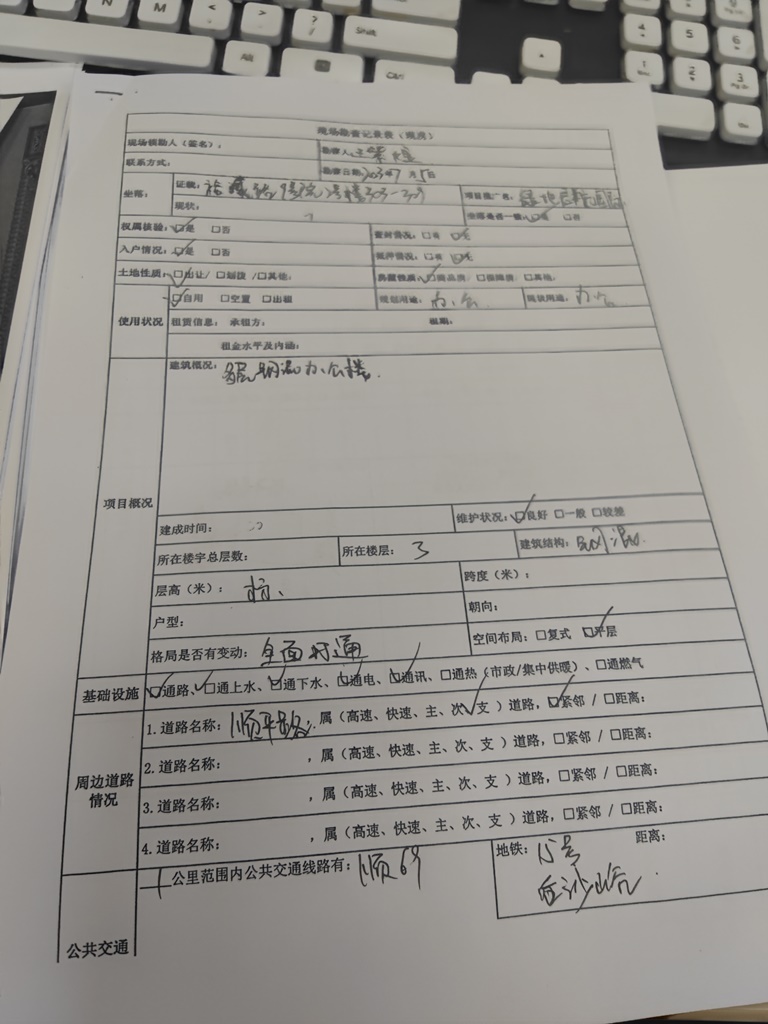 现场勘察记录表（现房）
现场领勘人（签名）：
勘察人：
联系方式：
勘察日期： 月5日
坐落： 证载： 2号楼303-309
项目推广名：
现状：
坐落是否一致：☑是 □否
权属核验：☑是 □否
查封情况：□有 ☑无
入户情况：☑是 □否
抵押情况：□有 ☑无
土地性质：☑出让/ □划拨 /□其他：
房屋性质：☑商品房/ □保障房/ □其他：
使用状况 ☑自用 □空置 □出租
规划用途：办公
现状用途：办公
租赁信息： 承租方： 租期：
租金水平及内涵：
项目概况
建筑概况： 钢混办公楼.
建成时间：
维护状况：☑良好 □一般 □较差
所在楼宇总层数：
所在楼层：3
建筑结构：钢混
层高（米）：
跨度（米）：
户型：
朝向：
格局是否有变动：全面打通
空间布局：□复式 ☑平层
基础设施 ☑通路、☑通上水、☑通下水、☑通电、☑通讯、□通热（市政/集中供暖）、□通燃气
周边道路情况
1. 道路名称：顺平路，属（高速、快速、主、次、支✓）道路，☑紧邻 / □距离：
2. 道路名称： ，属（高速、快速、主、次、支 ）道路，□紧邻 / □距离：
3. 道路名称： ，属（高速、快速、主、次、支 ）道路，□紧邻 / □距离：
4. 道路名称： ，属（高速、快速、主、次、支 ）道路，□紧邻 / □距离：
公共交通
公里范围内公共交通线路有：顺69
地铁：15号 距离：
后沙峪